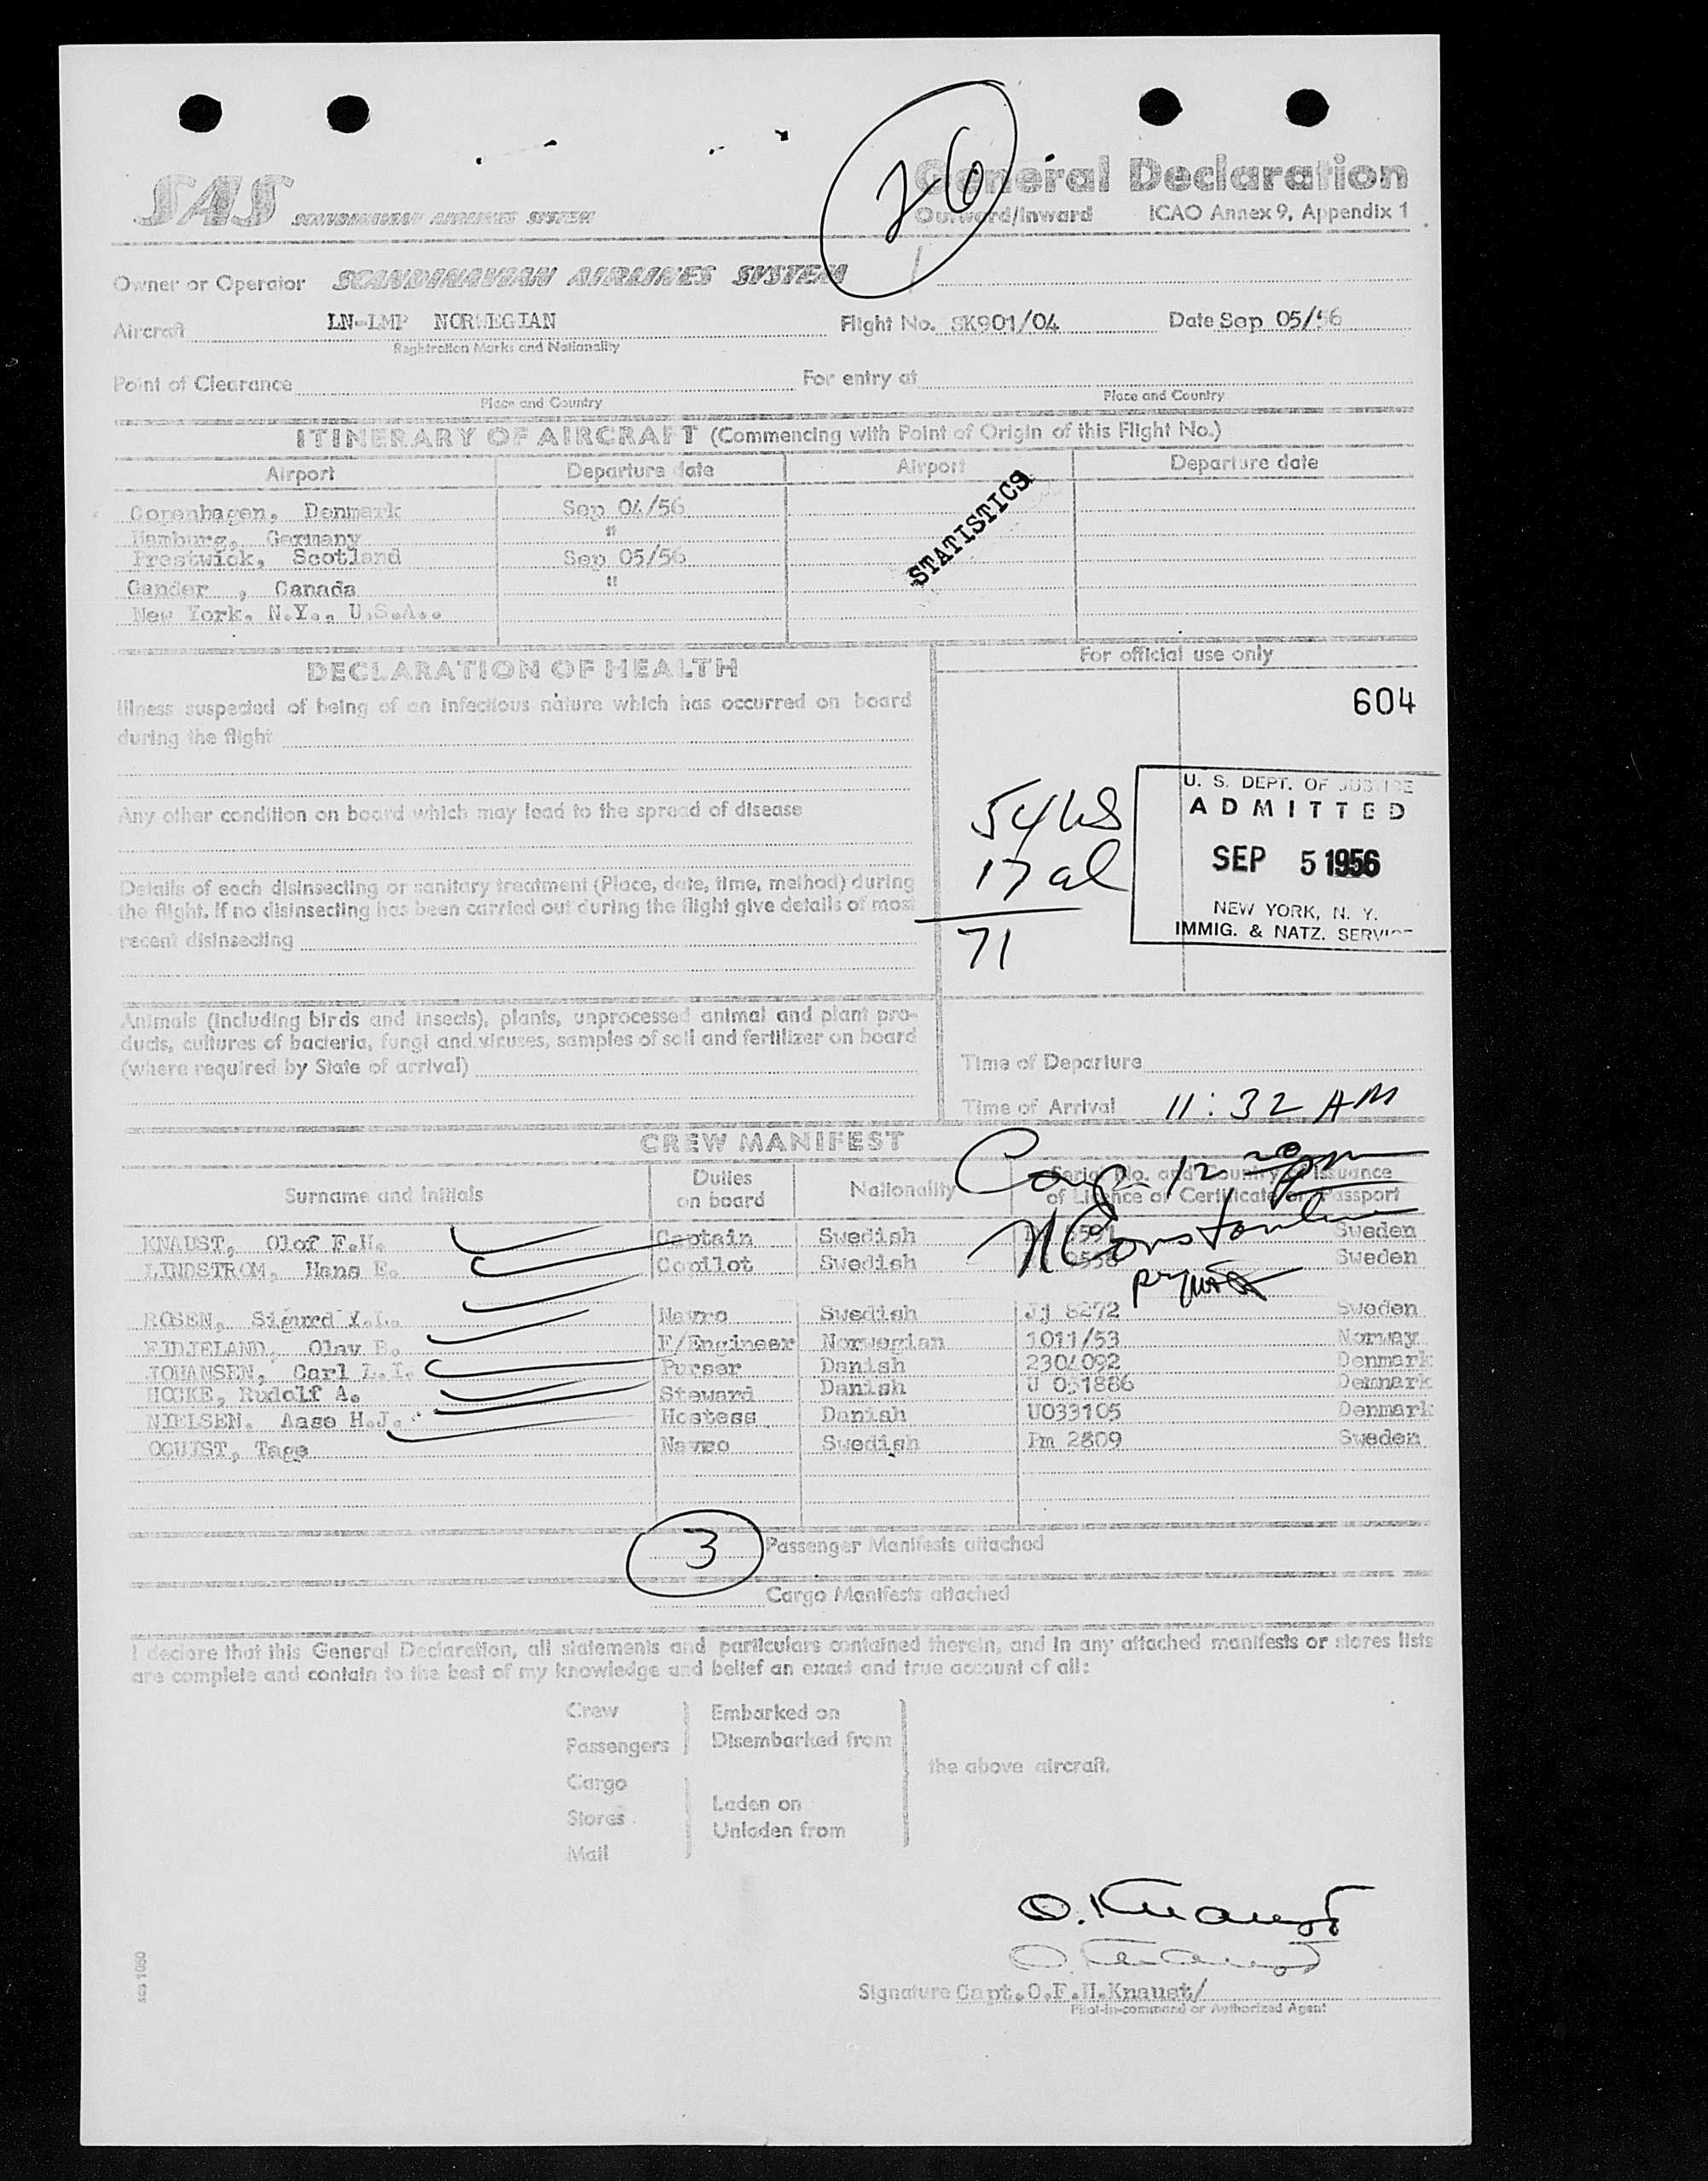 26
SAS SCANDINAVIAN AIRLINES SYSTEM
General Declaration
Outward/Inward ICAO Annex 9, Appendix 1
Owner or Operator SCANDINAVIAN AIRLINES SYSTEM
Aircraft LN-LMP NORWEGIAN Flight No. SK901/04 Date Sep 05/56
Registration Marks and Nationality
Point of Clearance For entry at
Place and Country Place and Country
ITINERARY OF AIRCRAFT (Commencing with Point of Origin of this Flight No.)
Airport Departure date Airport Departure date
Copenhagen, Denmark Sep 04/56
Hamburg, Germany "
Prestwick, Scotland Sep 05/56
Gander , Canada "
New York, N.Y., U.S.A..
STATISTICS
DECLARATION OF HEALTH
For official use only
Illness suspected of being of an infectious nature which has occurred on board
during the flight
604
Any other condition on board which may lead to the spread of disease
Details of each disinsecting or sanitary treatment (Place, date, time, method) during
the flight. If no disinsecting has been carried out during the flight give details of most
recent disinsecting
54 US
17 al
71
U. S. DEPT. OF JUSTICE
ADMITTED
SEP 5 1956
NEW YORK, N. Y.
IMMIG. & NATZ. SERVICE
Animals (including birds and insects), plants, unprocessed animal and plant pro-
ducts, cultures of bacteria, fungi and viruses, samples of soil and fertilizer on board
(where required by State of arrival)
Time of Departure
Time of Arrival 11:32 AM
CREW MANIFEST
Surname and Initials Duties on board Nationality Serial No. and Country of Issuance of Licence or Certificate or Passport
KNAUST, Olof F.H. Captain Swedish Sweden
LINDSTROM, Hans E. Copilot Swedish Sweden
ROSEN, Sigurd Y.L. Navro Swedish Jj 8272 Sweden
EIDJELAND, Olav B. F/Engineer Norwegian 1011/53 Norway
JOHANSEN, Carl L.I. Purser Danish 2304092 Denmark
HOCKE, Rudolf A. Steward Danish U 051886 Denmark
NIELSEN, Aase H.J. Hostess Danish U033105 Denmark
OQUIST, Tage Navro Swedish Pm 2809 Sweden
3 Passenger Manifests attached
Cargo Manifests attached
I declare that this General Declaration, all statements and particulars contained therein, and in any attached manifests or stores lists
are complete and contain to the best of my knowledge and belief an exact and true account of all:
Crew Embarked on
Passengers Disembarked from
the above aircraft.
Cargo
Stores Laden on
Unladen from
Mail
O. Knaust
O. Knaust
Signature Capt.O.F.H.Knaust/
Pilot-in-command or Authorized Agent
SAS 1060